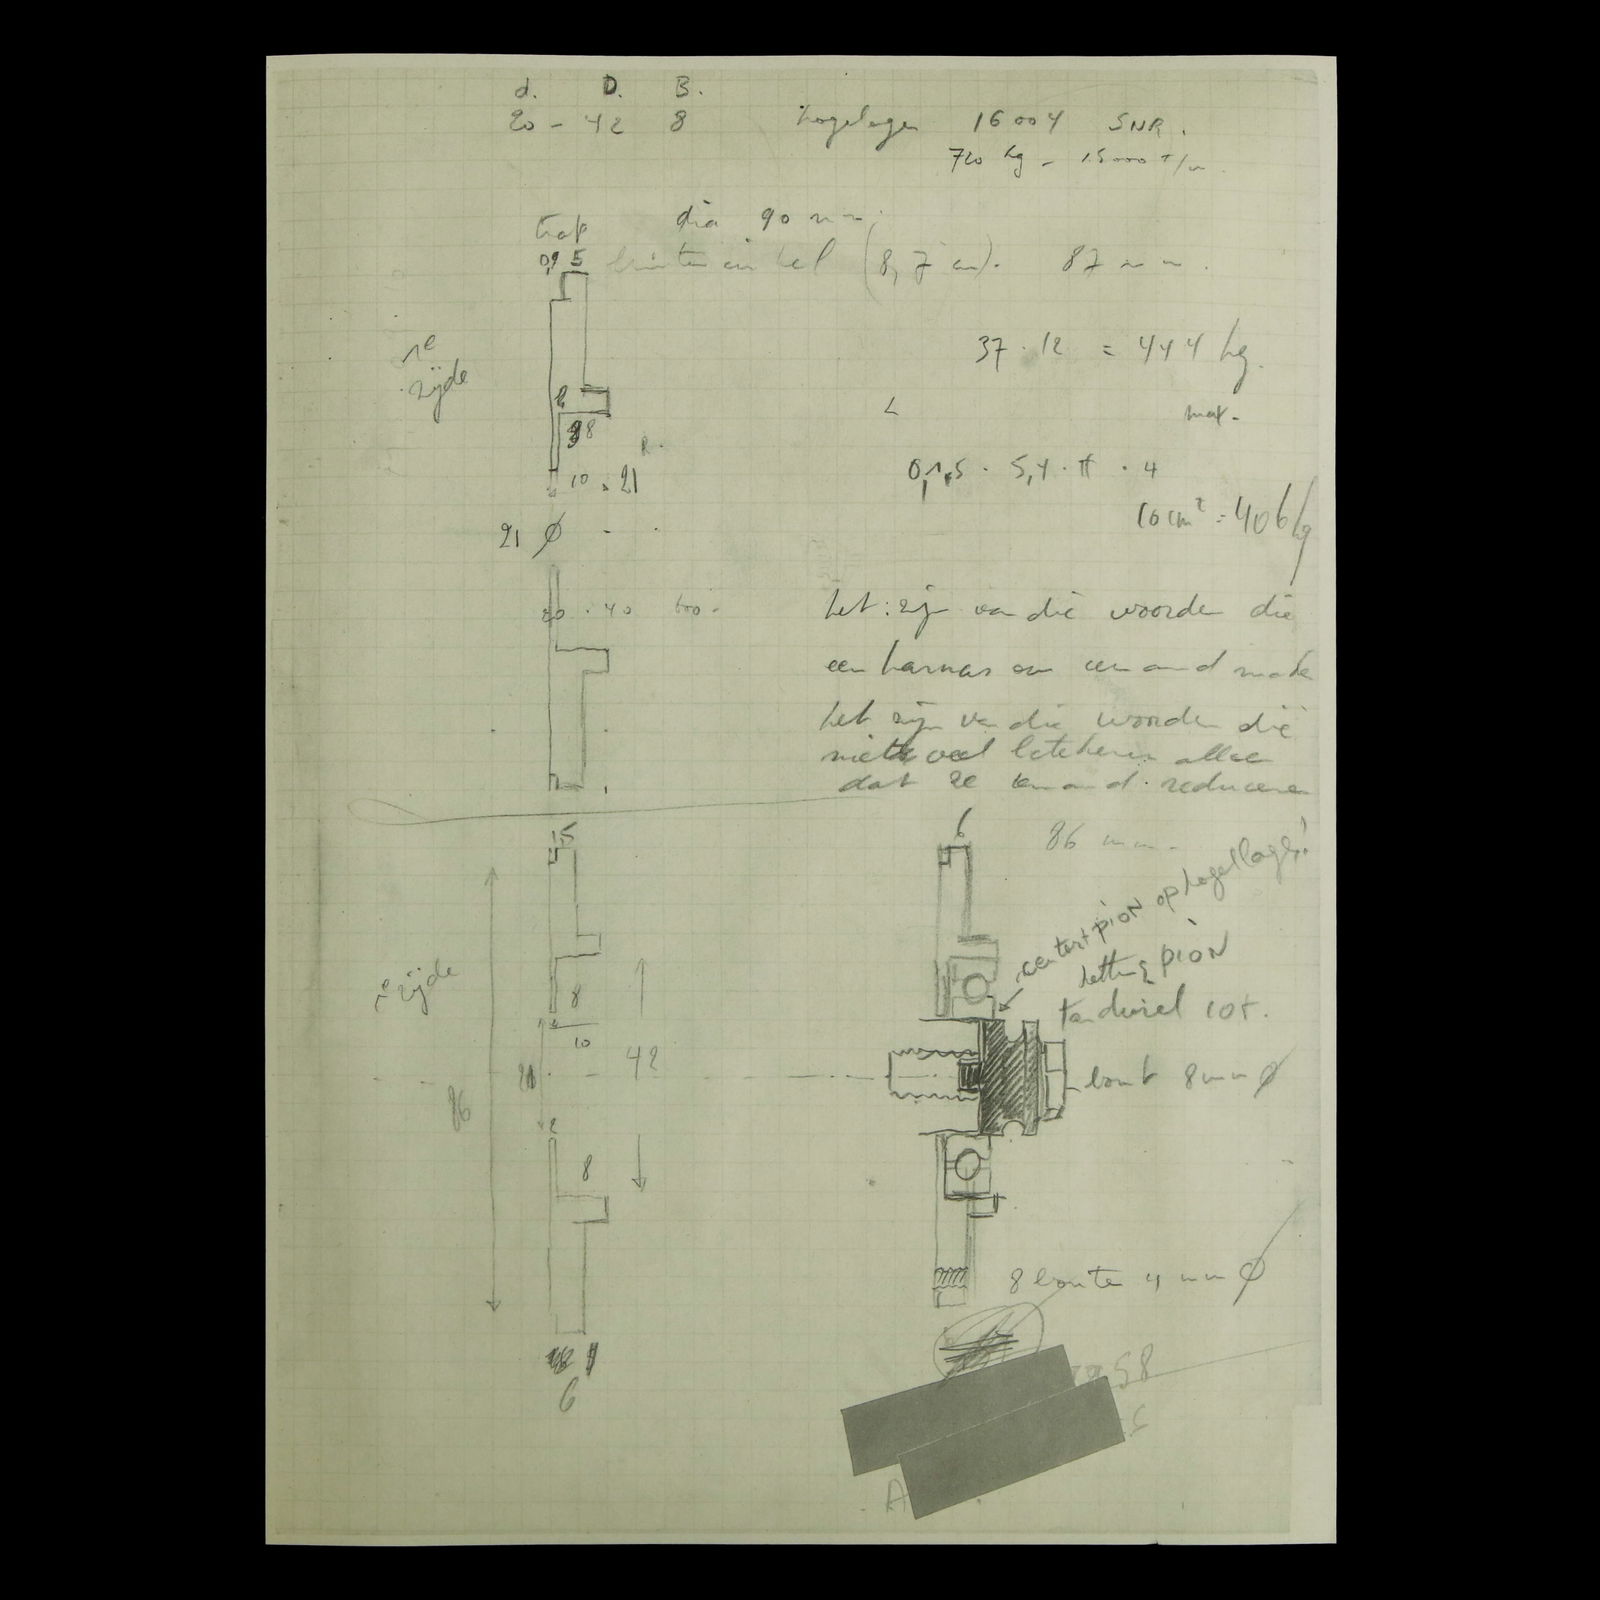 d. D. B.
20 - 42 8 kogellager 16004 SNR.
720 kg - 15000 t/m.
dia 90 mm.
0,9 5 (8,7 cm). 87 mm.
1e
zijde
37 . 12 = 444 kg.
max.
2
8
10 . 21
0,1,5 . 5,4 . π . 4
10 cm² = 406 kg
21 ø
20 . 40
het zijn van die woorden die
een harnas om iemand
het zijn van die woorden die
niet veel betekenen alleen
dat ze iemand reduceren
1,5
6
86 mm.
centert pion op kogellager!
ketting pion
tandwiel 10t.
1e zijde
8
2
10
42
21
86
bout 8 mm ø
2
8
8 bouten 4 mm ø
6
58
A